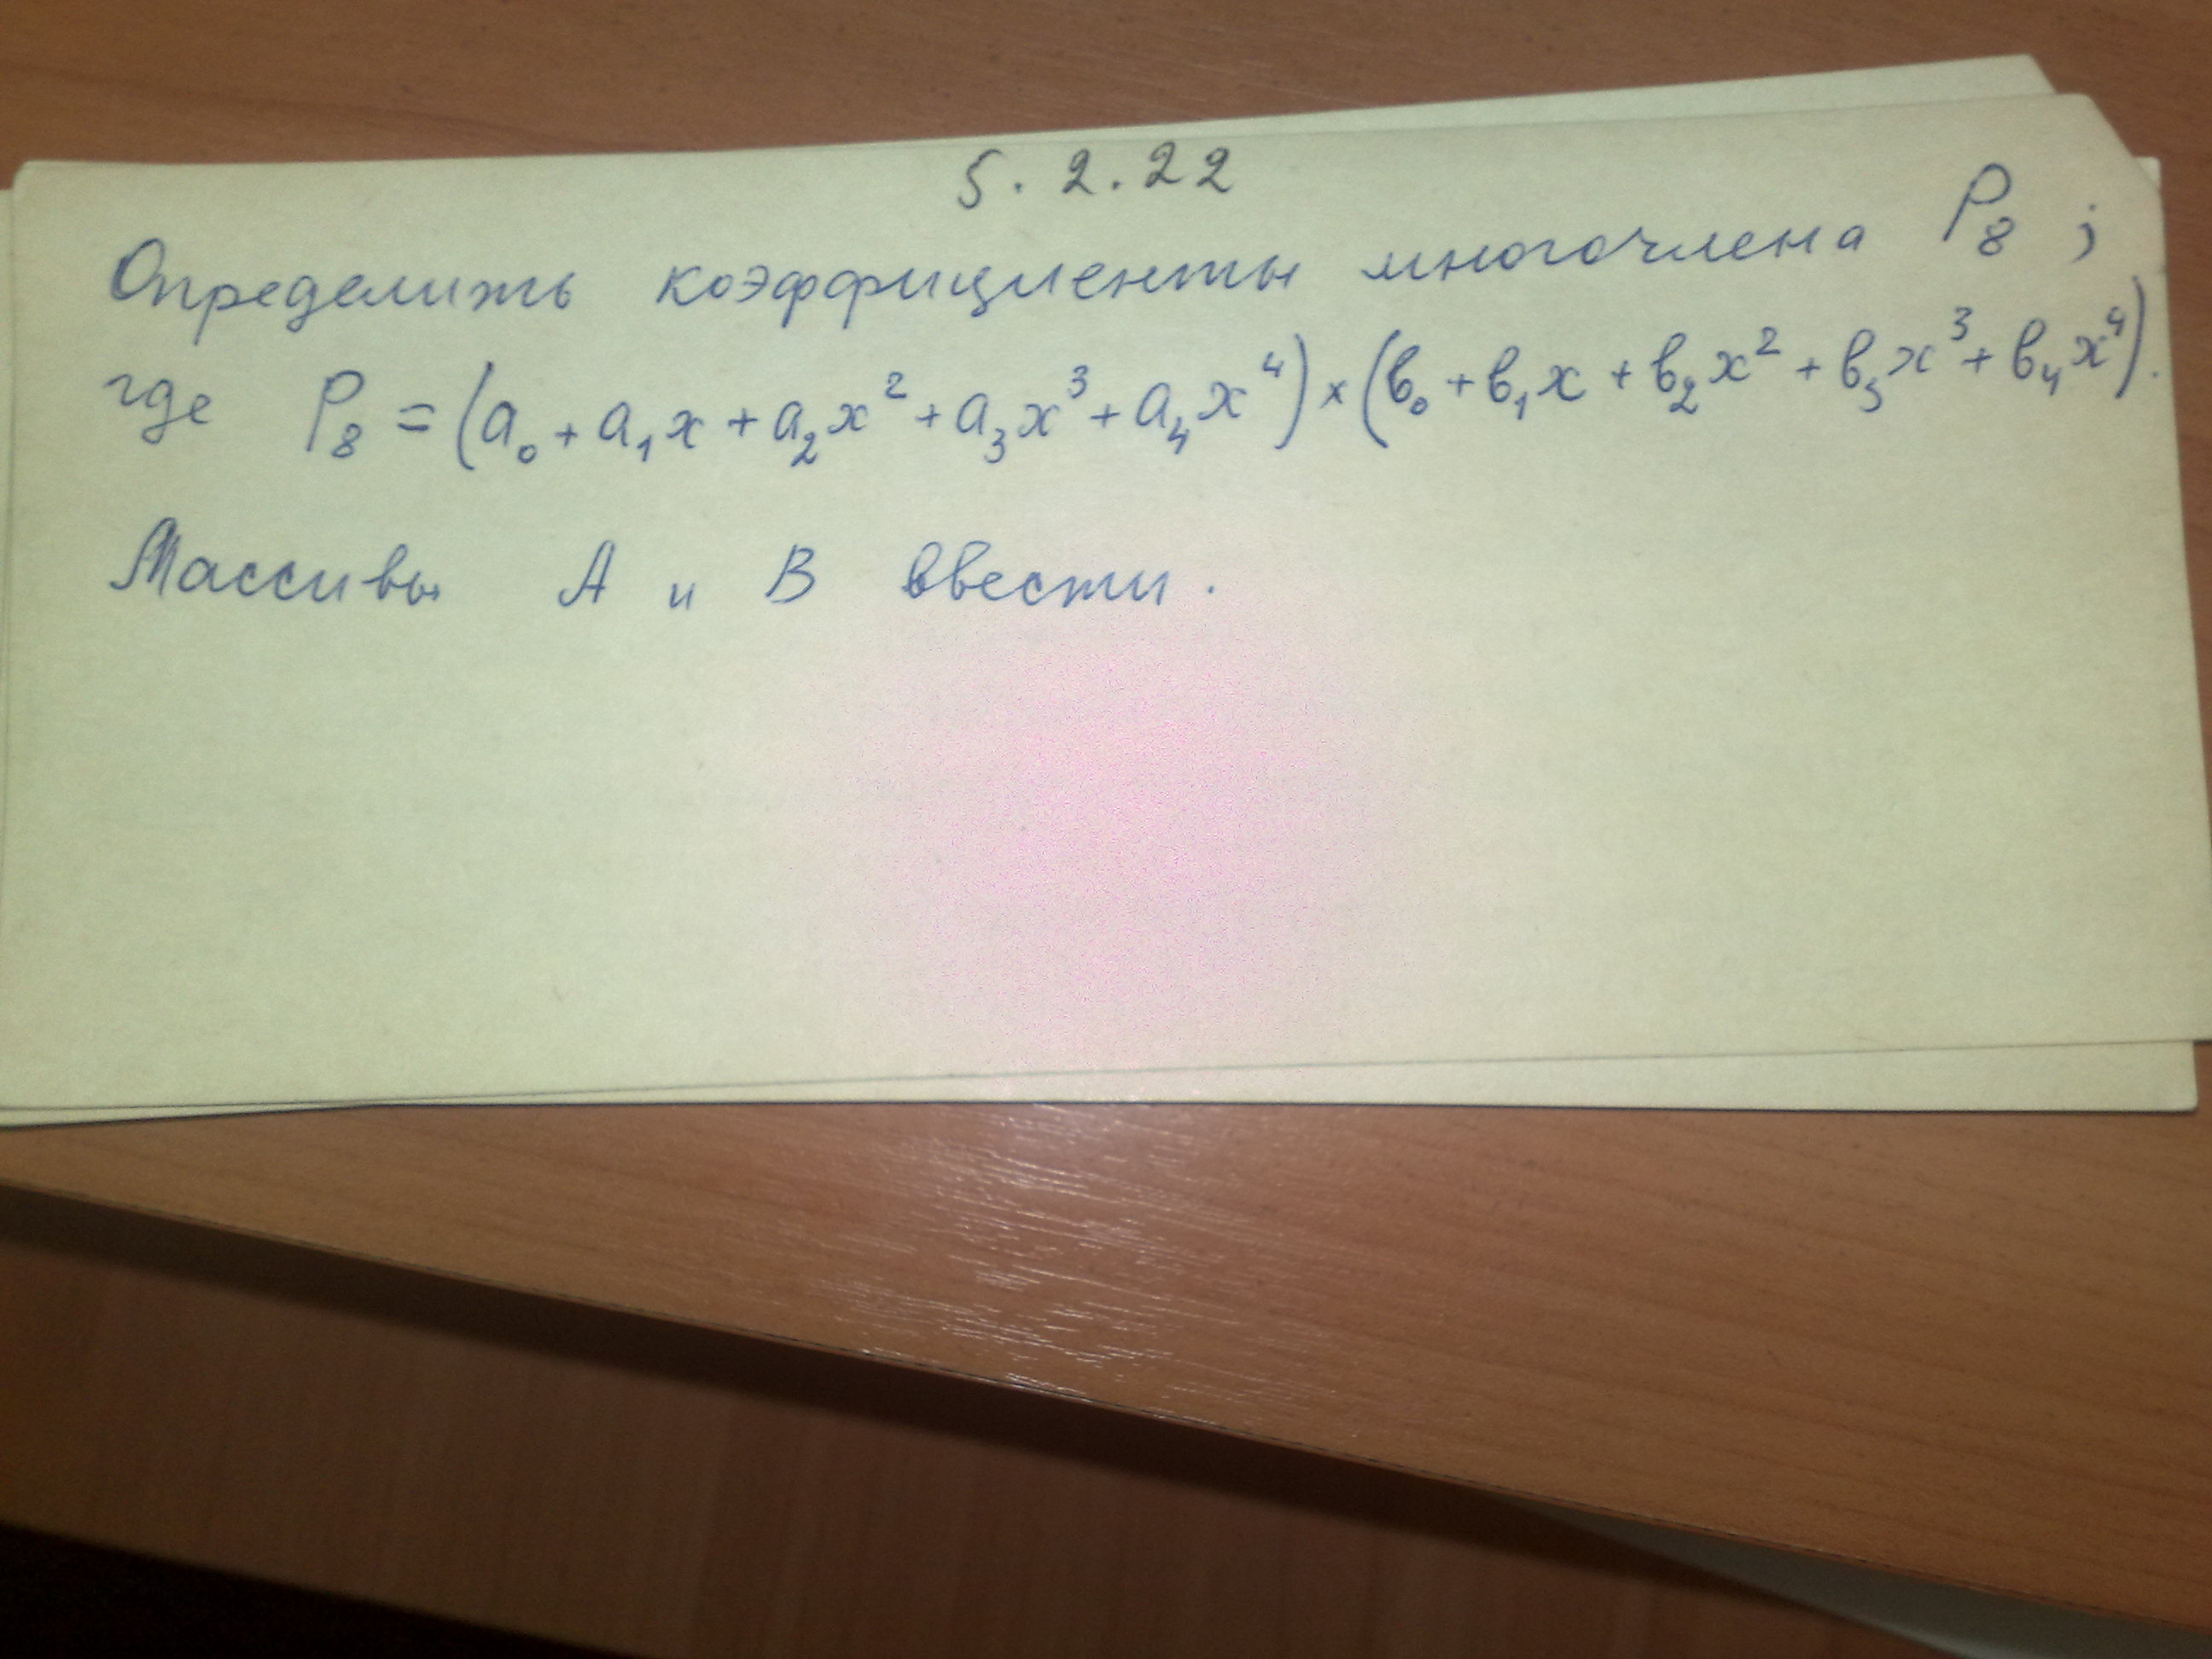 5.2.22
Определить коэффициенты многочлена P₈;
где P₈ = (a₀ + a₁x + a₂x² + a₃x³ + a₄x⁴) × (в₀ + в₁x + в₂x² + в₃x³ + в₄x⁴).
Массивы A и B ввести.